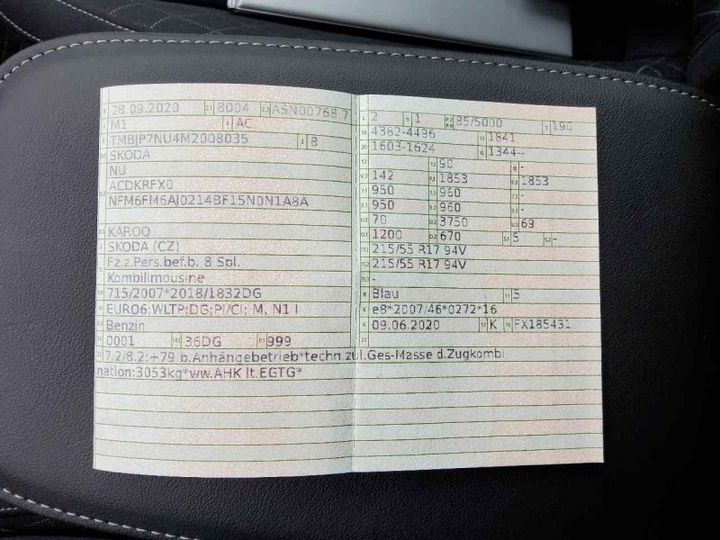 28.09.2020 8004 ASN00768 7
M1 AC
TMBJP7NU4M2008035 8
SKODA
NU
ACDKRFX0
NFM6FM6AJ0214BF15N0N1A8A
KAROQ
SKODA (CZ)
Fz.z.Pers.bef.b. 8 Spl.
Kombilimousine
715/2007*2018/1832DG
EURO6;WLTP;DG;PI/CI; M, N1 I
Benzin
0001 36DG 999
7.2/8.2:+79 b.Anhängebetrieb*techn.zul.Ges-Masse d.Zugkombi
nation:3053kg*ww.AHK lt.EGTG*
2 1 85/5000 190
4362-4496 1841
1603-1624 1344--
- 90 -
142 1853 1853
950 960 -
950 960 -
70 3750 69
1200 670 5 -
215/55 R17 94V
215/55 R17 94V
-
Blau 5
e8*2007/46*0272*16
09.06.2020 K FX185431